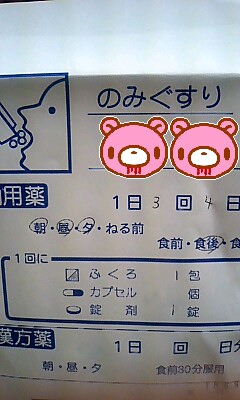 のみぐすり
用薬 1日 3 回 4 日
朝・昼・夕・ねる前
食前・食後・食
1回に
ふくろ 1 包
カプセル 個
錠剤 1 錠
漢方薬 1日 回 日
朝・昼・夕 食前30分服用